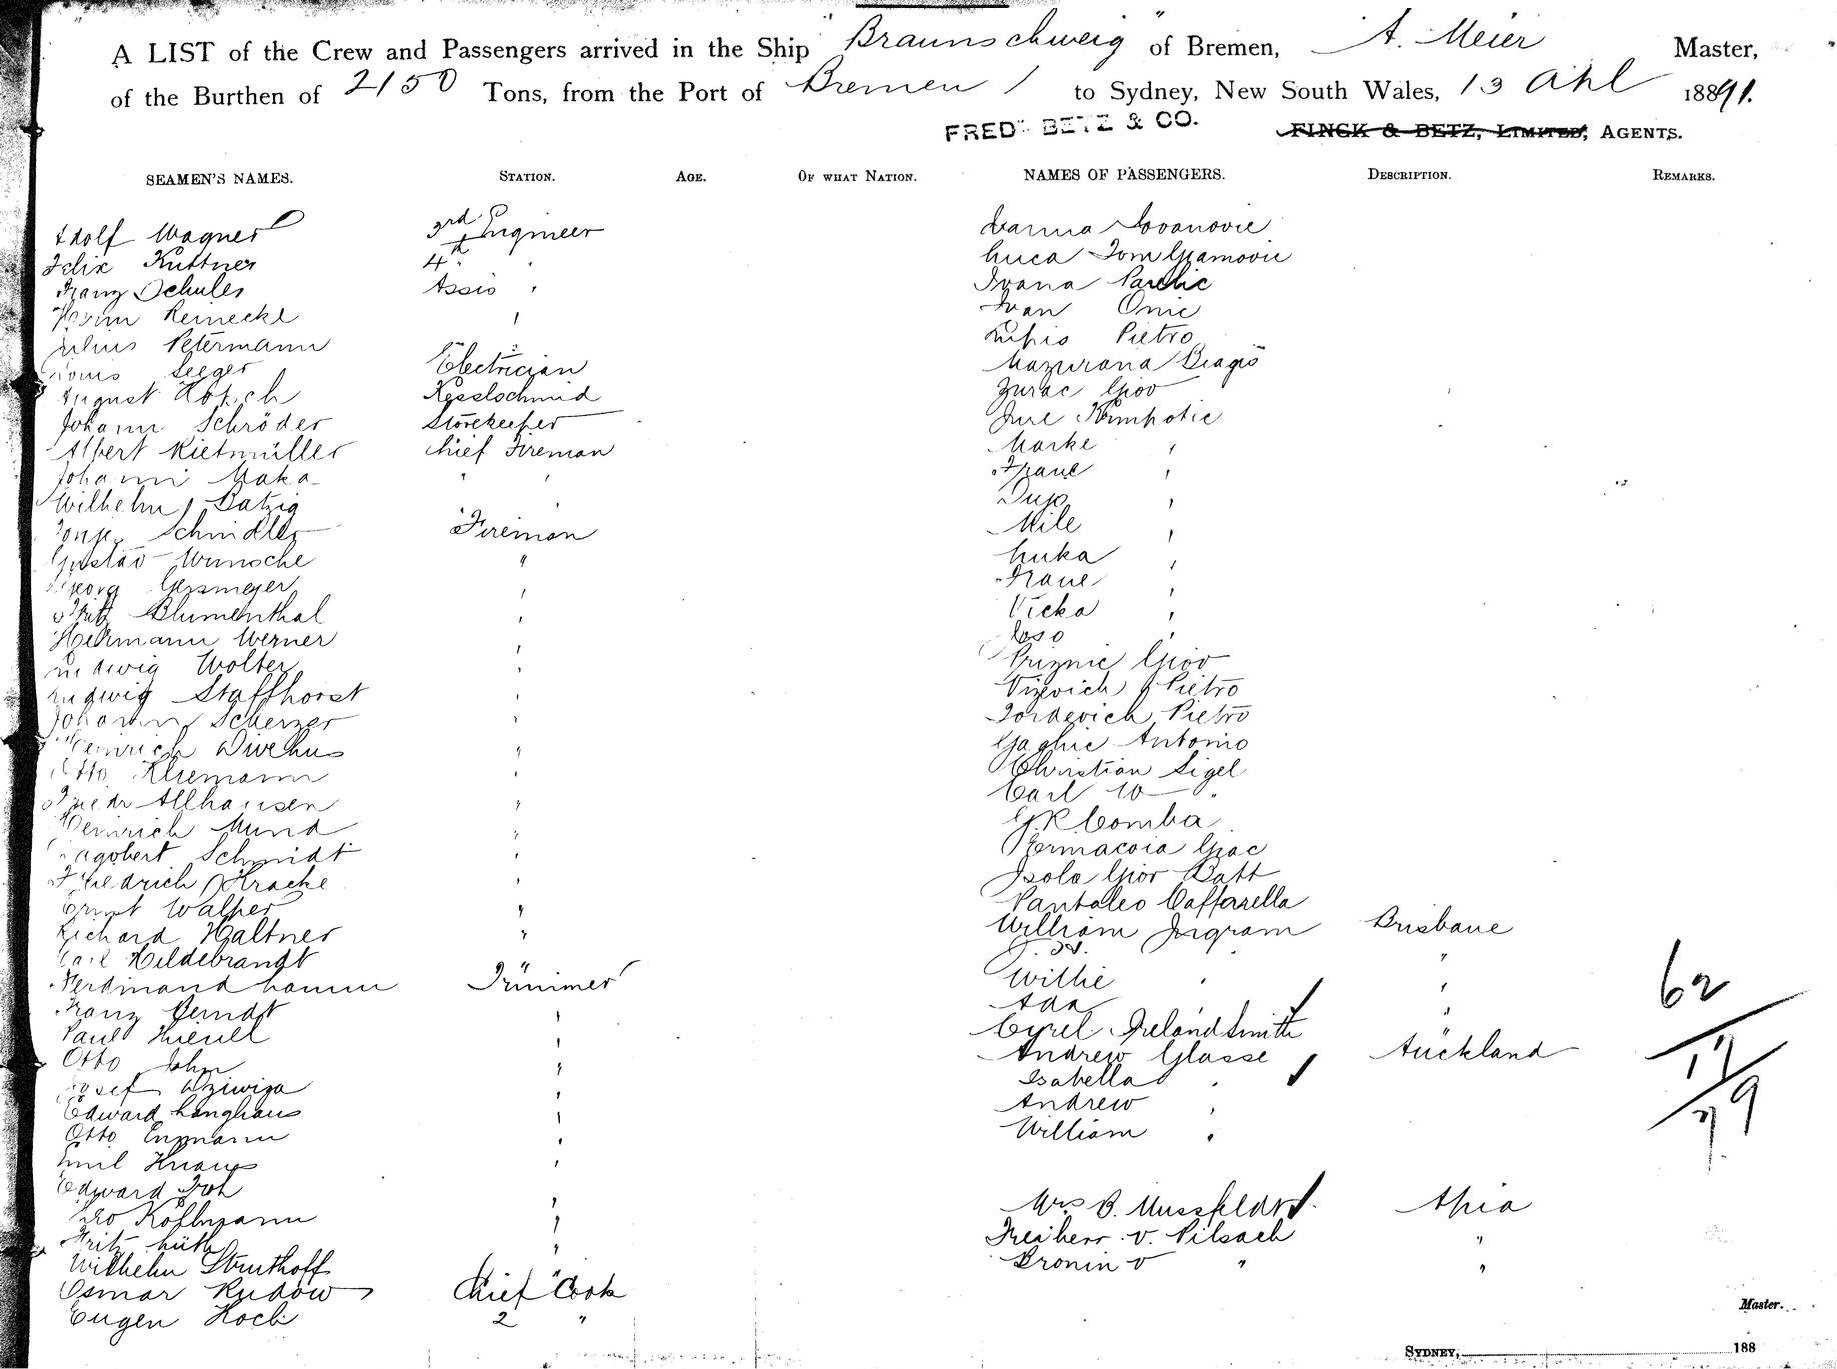 A LIST of the Crew and Passengers arrived in the Ship "Braunschweig" of Bremen, A. Meier Master,
of the Burthen of 2150 Tons, from the Port of Bremen to Sydney, New South Wales, 13 1891.
FREDK BETZ & CO. FINCK & BETZ, LIMITED, AGENTS.
SEAMEN'S NAMES. STATION. AGE. OF WHAT NATION. NAMES OF PASSENGERS. DESCRIPTION. REMARKS.
Adolf Wagner 3rd Engineer
Felix Kuttner 4th " "
Franz Schules Assis "
Herm Reinecke "
Julius Petermann "
Louis Seeger Electrician
August Kesselschmid
Johann Schröder Storekeeper
Albert Rietmüller Chief Fireman
Johann " "
Wilhelm Batzig "
Schindler Fireman
Gustav Wunsche "
Georg Gersmeyer "
Fritz Blumenthal "
Hermann Werner "
Ludwig Wolter "
Ludwig Staffhorst "
Johann Scherzer "
Heinrich "
Otto Kliemann "
Friedr Allhausen "
Heinrich Mund "
Dagobert Schmidt "
Friedrich Kracke "
Ernst Walper "
Richard Haltner "
Carl Hildebrandt "
Ferdinand Lamm Trimmer
Franz Berndt "
Paul "
Otto John "
Josef "
Edward Langhans "
Otto Enzmann "
Emil Knaus "
Edward "
Leo "
Fritz "
Wilhelm Struthoff "
Osmar Rudow Chief Cook
Eugen Koch 2 "
Ivanna Iovanovic
Luca
Ivana Pavlic
Ivan Onic
Pietro
Mazurana Biagio
Zurac Giov
Jure Krmpotic
Marke "
Frane "
Dujo "
Mile "
Luka "
Frane "
Vicka "
Joso "
Priznic Giov
Pietro
Jordevich Pietro
Antonio
Christian Sigel
Carl W "
G. R. Comba
Giac
Isola Giov Batt
Pantaleo Caffarella
William Ingram Brisbane
"
Willie " "
Ada "
Cyrel Ireland Smith "
Andrew Glasse Auckland
Isabella "
Andrew "
William "
Mrs B. Mussfeldt Apia
Freiherr v. Pilsach "
Bronin v " "
62
17
79
Master.
SYDNEY, 188